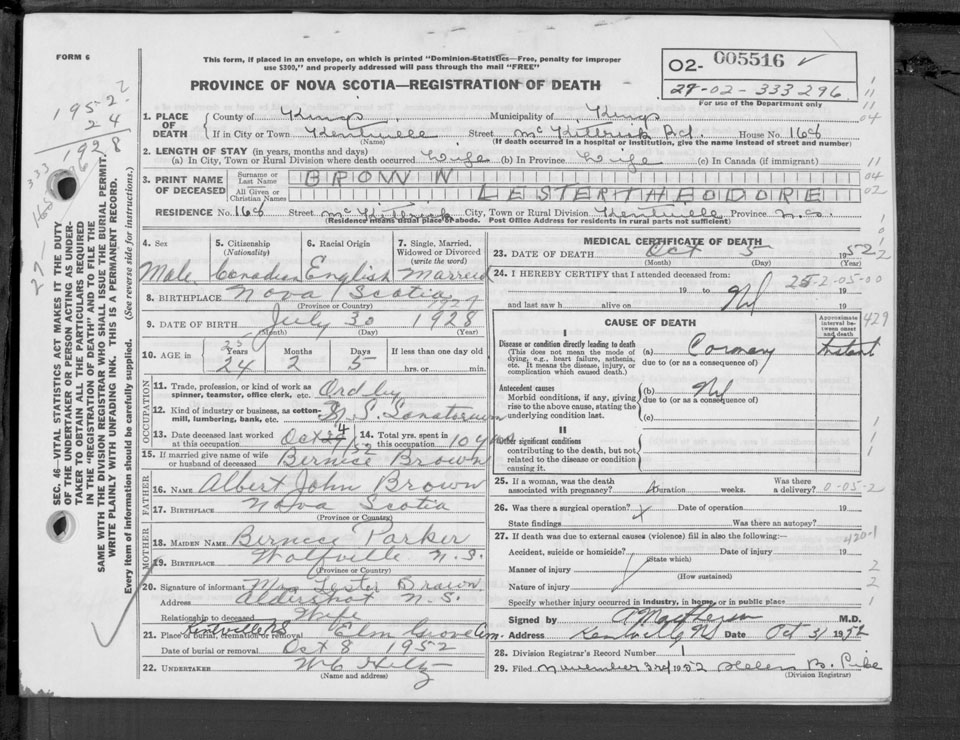 FORM 6
This form, if placed in an envelope, on which is printed "Dominion Statistics—Free, penalty for improper
use $300," and properly addressed will pass through the mail "FREE"
PROVINCE OF NOVA SCOTIA—REGISTRATION OF DEATH
O2- 005516
27-02-333296
For use of the Department only
1952
24
1928
1. PLACE OF DEATH County of Kings Municipality of Kings
If in City or Town Kentville Street McKittrick Rd. House No. 168
(Name) (If death occurred in a hospital or institution, give the name instead of street and number)
2. LENGTH OF STAY (in years, months and days)
(a) In City, Town or Rural Division where death occurred Life (b) In Province Life (c) In Canada (if immigrant)
3. PRINT NAME OF DECEASED Surname or Last Name BROWN
All Given or Christian Names LESTER THEODORE
RESIDENCE No. 168 Street McKittrick City, Town or Rural Division Kentville Province N.S.
(Residence means usual place of abode. Post Office Address for residents in rural parts not sufficient)
SEC. 46—VITAL STATISTICS ACT MAKES IT THE DUTY
OF THE UNDERTAKER OR PERSON ACTING AS UNDER-
TAKER TO OBTAIN ALL THE PARTICULARS REQUIRED
IN THE "REGISTRATION OF DEATH" AND TO FILE THE
SAME WITH THE DIVISION REGISTRAR WHO SHALL ISSUE THE BURIAL PERMIT.
WRITE PLAINLY WITH UNFADING INK. THIS IS A PERMANENT RECORD.
Every item of information should be carefully supplied. (See reverse side for instructions.)
4. Sex 5. Citizenship (Nationality) 6. Racial Origin 7. Single, Married, Widowed or Divorced (write the word)
Male Canadian English Married
8. BIRTHPLACE Nova Scotia
(Province or Country)
9. DATE OF BIRTH July 30 1928
(Month) (Day) (Year)
10. AGE in Years Months Days If less than one day old
24 2 5 hrs. or min.
OCCUPATION
11. Trade, profession, or kind of work as
spinner, teamster, office clerk, etc. Ordly
12. Kind of industry or business, as cotton-
mill, lumbering, bank, etc. N S Sanatorium
13. Date deceased last worked
at this occupation Oct 4 /52 14. Total yrs. spent in
this occupation
15. If married give name of wife
or husband of deceased Bernice Brown
FATHER
16. NAME Albert John Brown
17. BIRTHPLACE Nova Scotia
(Province or Country)
MOTHER
18. MAIDEN NAME Bernice Parker
19. BIRTHPLACE Wolfville N.S.
(Province or Country)
20. Signature of informant Mrs Lester Brown
Address Aldershot N.S.
Relationship to deceased Wife
21. Place of burial, cremation or removal Kentville NS Elm Grove Cem.
Date of burial or removal Oct 8 1952
22. UNDERTAKER W C Hiltz
(Name and address)
MEDICAL CERTIFICATE OF DEATH
23. DATE OF DEATH Oct 5 1952
(Month) (Day) (Year)
24. I HEREBY CERTIFY that I attended deceased from:
19 to 19
25-2-05-00
and last saw h alive on Nil 19
CAUSE OF DEATH
Approximate interval between onset and death
429
I
Disease or condition directly leading to death
(This does not mean the mode of
dying, e.g., heart failure, asthenia,
etc. It means the disease, injury, or
complication which caused death.)
(a) Coronary Instant
due to (or as a consequence of)
Antecedent causes
Morbid conditions, if any, giving
rise to the above cause, stating the
underlying condition last.
(b) Nil
due to (or as a consequence of)
(c)
II
Other significant conditions
contributing to the death, but not
related to the disease or condition
causing it.
25. If a woman, was the death
associated with pregnancy? Duration weeks. Was there
a delivery? 0-05-2
26. Was there a surgical operation? Date of operation 19
State findings Was there an autopsy?
27. If death was due to external causes (violence) fill in also the following:—
420-1
Accident, suicide or homicide? Date of injury 19
(State which)
Manner of injury
(How sustained)
Nature of injury
Specify whether injury occurred in industry, in home, or in public place
Signed by M.D.
Address Kentville NS Date Oct 31 1952
28. Division Registrar's Record Number 1
29. Filed November 3rd 1952 Helen B. Pike
(Division Registrar)